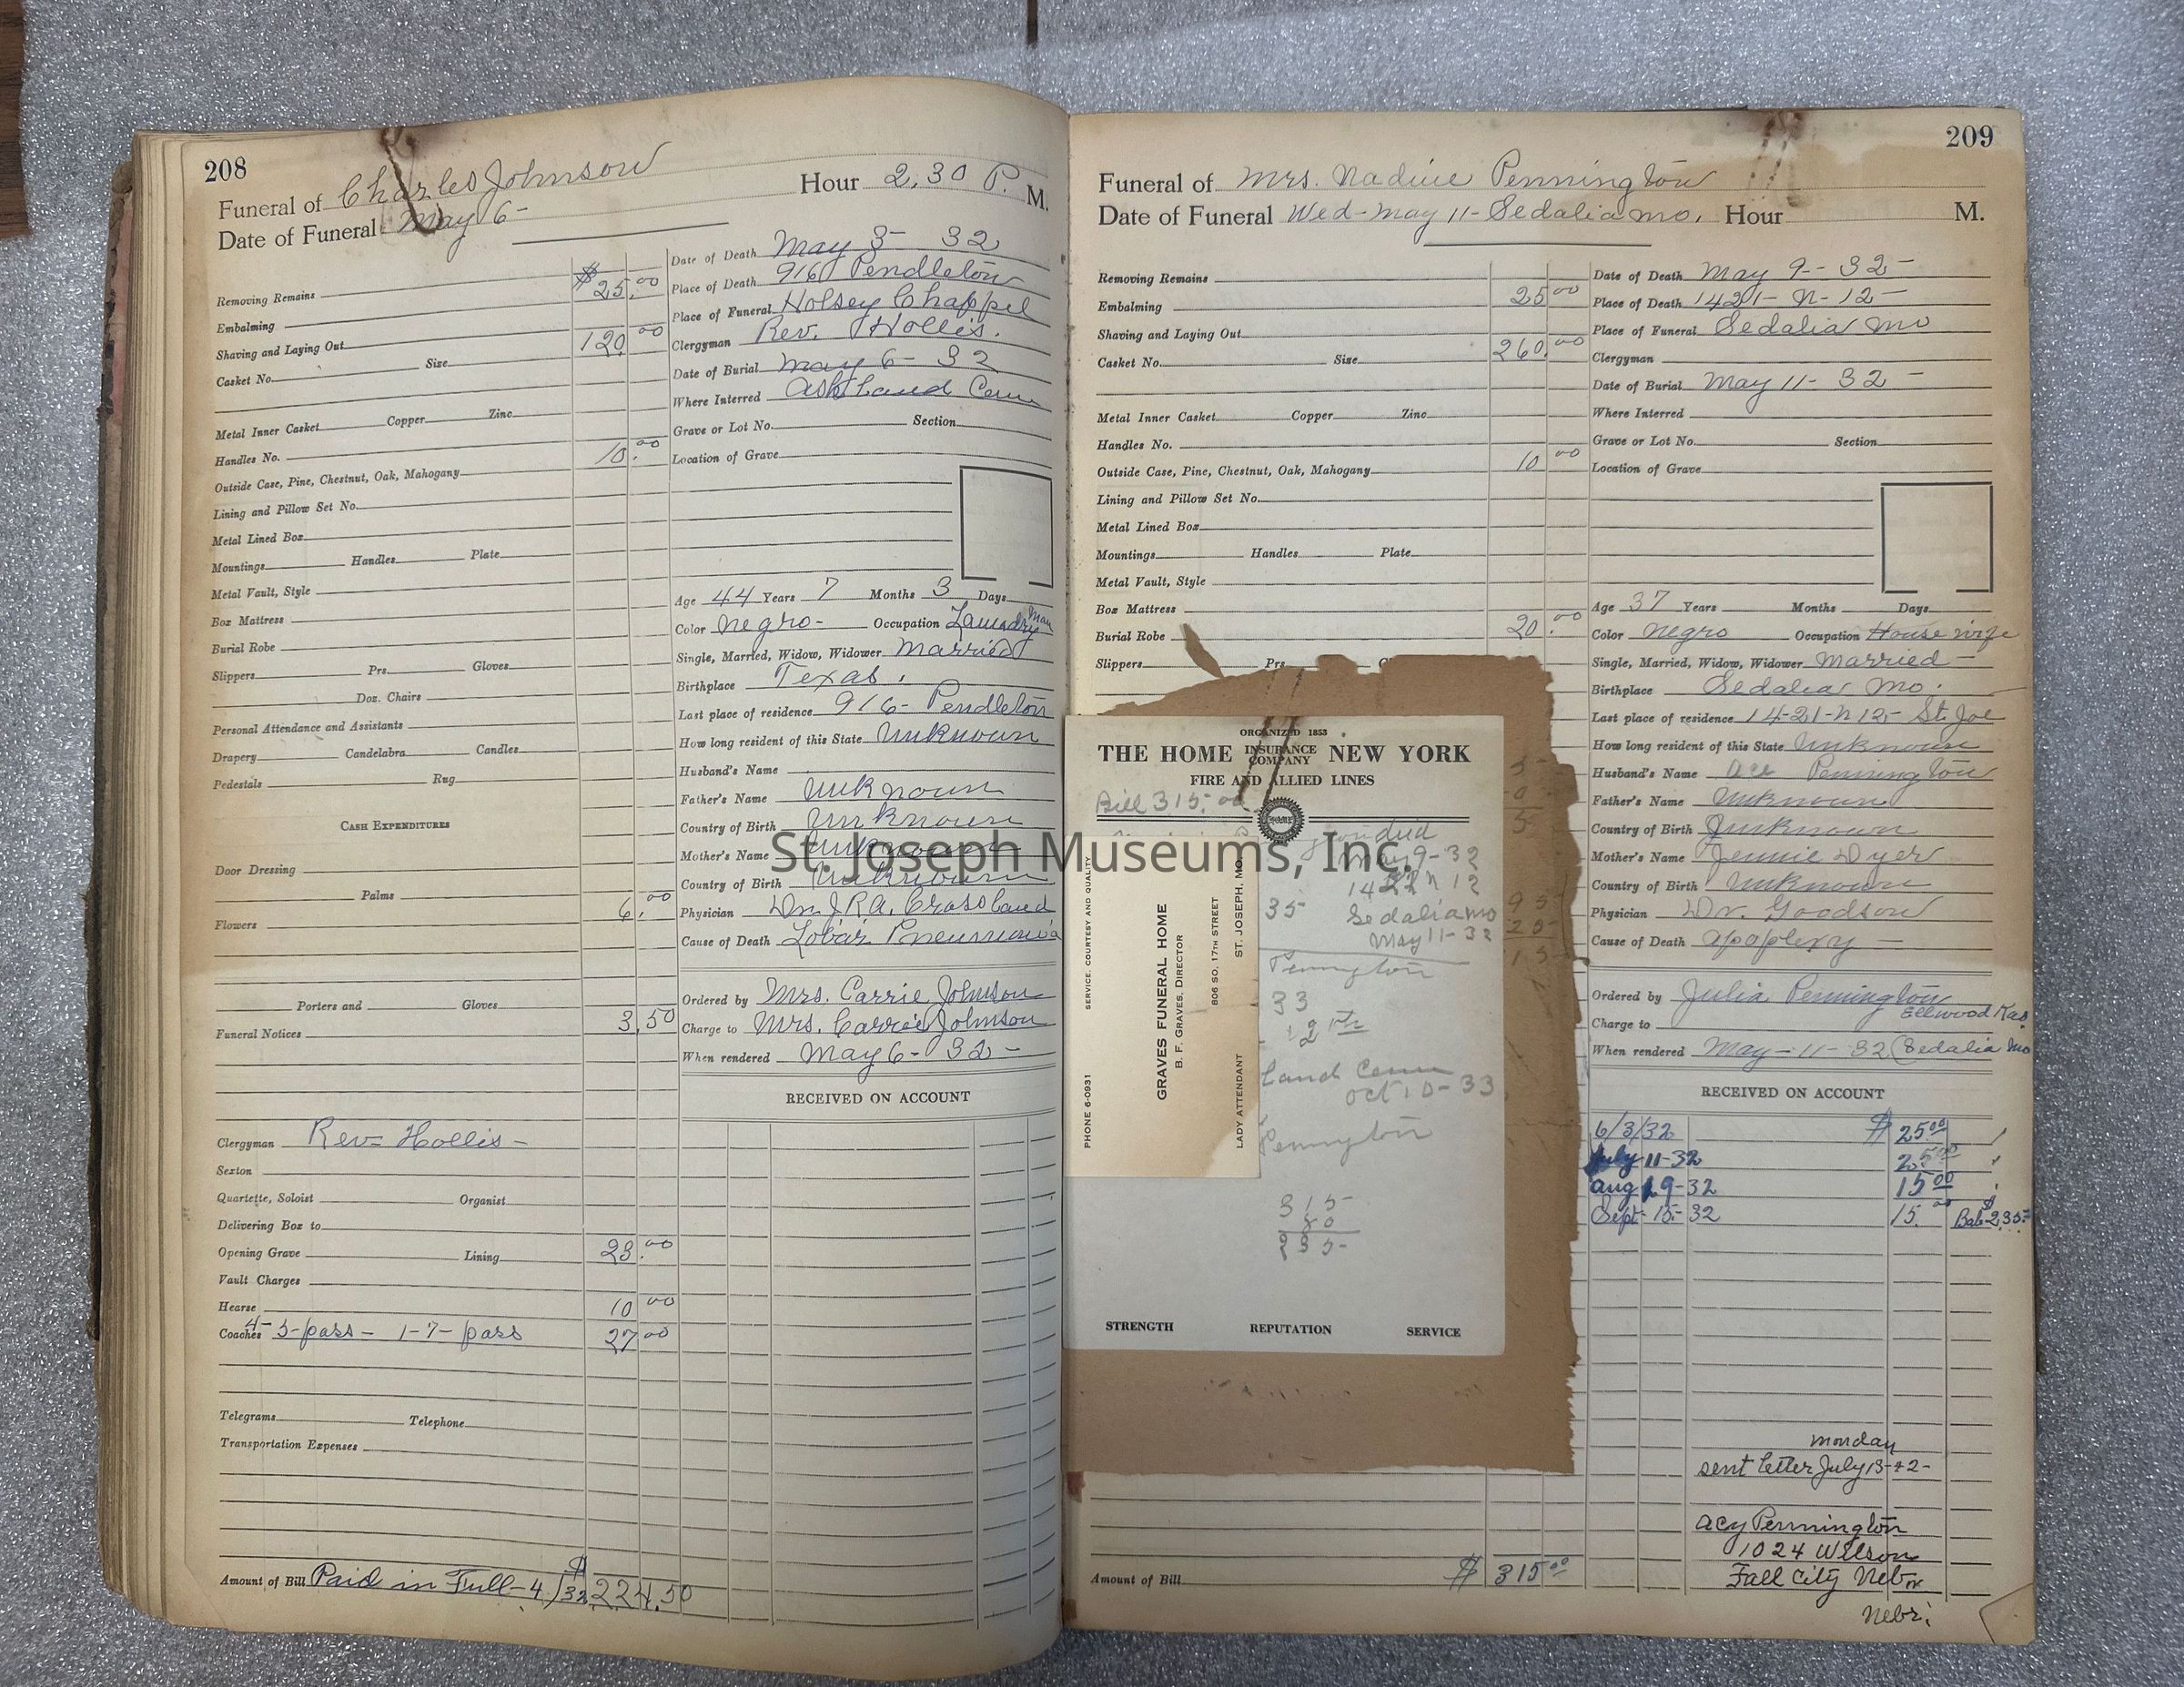 208
Funeral of Charles Johnson Hour 2,30 P. M.
Date of Funeral May 6-
Removing Remains
Embalming $25.00
Shaving and Laying Out
Casket No. Size 120.00
Metal Inner Casket Copper Zinc
Handles No.
Outside Case, Pine, Chestnut, Oak, Mahogany 10.00
Lining and Pillow Set No.
Metal Lined Box
Mountings Handles Plate
Metal Vault, Style
Box Mattress
Burial Robe
Slippers Prs. Gloves
Doz. Chairs
Personal Attendance and Assistants
Drapery Candelabra Candles
Pedestals Rug
CASH EXPENDITURES
Door Dressing
Palms
Flowers 6.00
Porters and Gloves
Funeral Notices 3.50
Clergyman Rev- Hollis-
Sexton
Quartette, Soloist Organist
Delivering Box to
Opening Grave Lining 23.00
Vault Charges
Hearse 10 00
Coaches 4- 5-pass- 1-7-pass 27 00
Telegrams Telephone
Transportation Expenses
Amount of Bill Paid in Full-4/32 $224.50
Date of Death May 3- 32
Place of Death 916 Pendleton
Place of Funeral Holsey Chappel
Clergyman Rev. Hollis.
Date of Burial May 6- 32
Where Interred Ashland Cem
Grave or Lot No. Section
Location of Grave
Age 44 Years 7 Months 3 Days
Color Negro- Occupation Laundry man
Single, Married, Widow, Widower Married
Birthplace Texas.
Last place of residence 916- Pendleton
How long resident of this State Unknown
Husband's Name
Father's Name Unknown
Country of Birth Unknown
Mother's Name Unknown
Country of Birth Unknown
Physician Dr. J.R.A. Crossland
Cause of Death Lobar Pneumonia
Ordered by Mrs. Carrie Johnson
Charge to Mrs. Carrie Johnson
When rendered May 6- 32-
RECEIVED ON ACCOUNT
209
Funeral of Mrs. Nadine Pennington
Date of Funeral Wed-May 11-Sedalia Mo. Hour M.
Removing Remains
Embalming 25 00
Shaving and Laying Out
Casket No. Size 260.00
Metal Inner Casket Copper Zinc
Handles No.
Outside Case, Pine, Chestnut, Oak, Mahogany 10 00
Lining and Pillow Set No.
Metal Lined Box
Mountings Handles Plate
Metal Vault, Style
Box Mattress
Burial Robe 20.00
Slippers Prs.
ORGANIZED 1853
THE HOME INSURANCE COMPANY NEW YORK
FIRE AND ALLIED LINES
Bill 315.00
May 9-32
1422 N 12
35 Sedalia Mo
May 11-32
Pennington
33
12th
land Cem
Oct 10-33
Pennyton
315
80
235-
STRENGTH REPUTATION SERVICE
PHONE 6-0931 SERVICE, COURTESY AND QUALITY
GRAVES FUNERAL HOME
B. F. GRAVES, DIRECTOR
806 SO. 17TH STREET
LADY ATTENDANT ST. JOSEPH, MO.
Amount of Bill $315 00
Date of Death May 9-32-
Place of Death 1421- N-12-
Place of Funeral Sedalia Mo
Clergyman
Date of Burial May 11- 32-
Where Interred
Grave or Lot No. Section
Location of Grave
Age 37 Years Months Days
Color Negro Occupation House wife
Single, Married, Widow, Widower Married-
Birthplace Sedalia Mo.
Last place of residence 1421-N 12- St. Joe
How long resident of this State Unknown
Husband's Name Ace Pennington
Father's Name Unknown
Country of Birth Unknown
Mother's Name Jennie Dyer
Country of Birth Unknown
Physician Dr. Goodson
Cause of Death Apoplexy-
Ordered by Julia Pennington
Charge to Ellwood Kas.
When rendered May-11-32 (Sedalia Mo
RECEIVED ON ACCOUNT
6/3/32 $25.00
July 11-32 25.00
Aug 19-32 15 00
Sept-15-32 15.00 Bal- $235-
Monday
sent letter July 13-42-
Acy Pennington
1024 Wilson
Fall City Nebr
Nebr.
St. Joseph Museums, Inc.